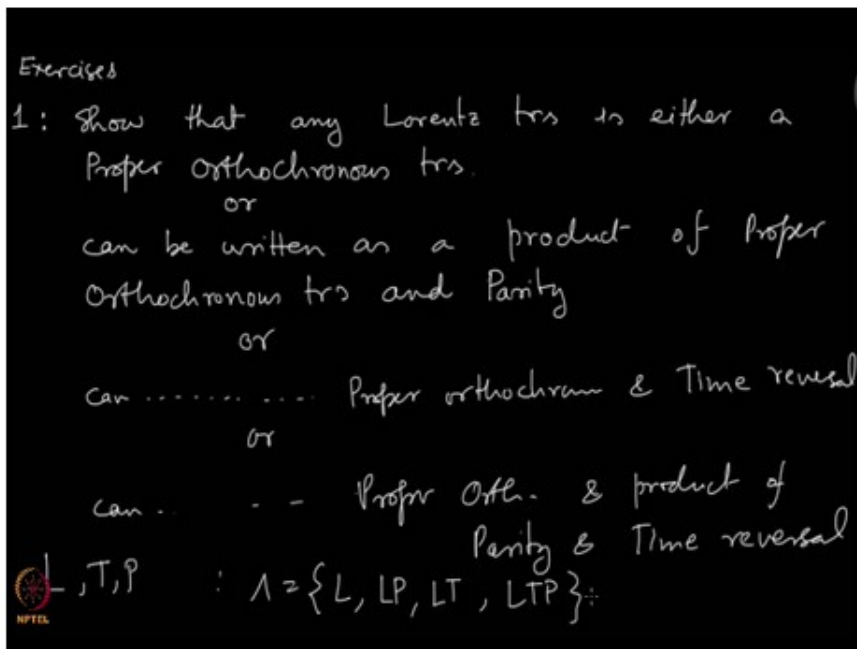 Exercises
1: Show that any Lorentz trs is either a
Proper Orthochronous trs.
or
can be written as a product of Proper
Orthochronous trs and Parity
or
can ........ .... Proper orthochram & Time reversal
or
can . . - - Proper Orth. & product of
Parity & Time reversal
L, T, P : Λ = {L, LP, LT, LTP} :
NPTEL